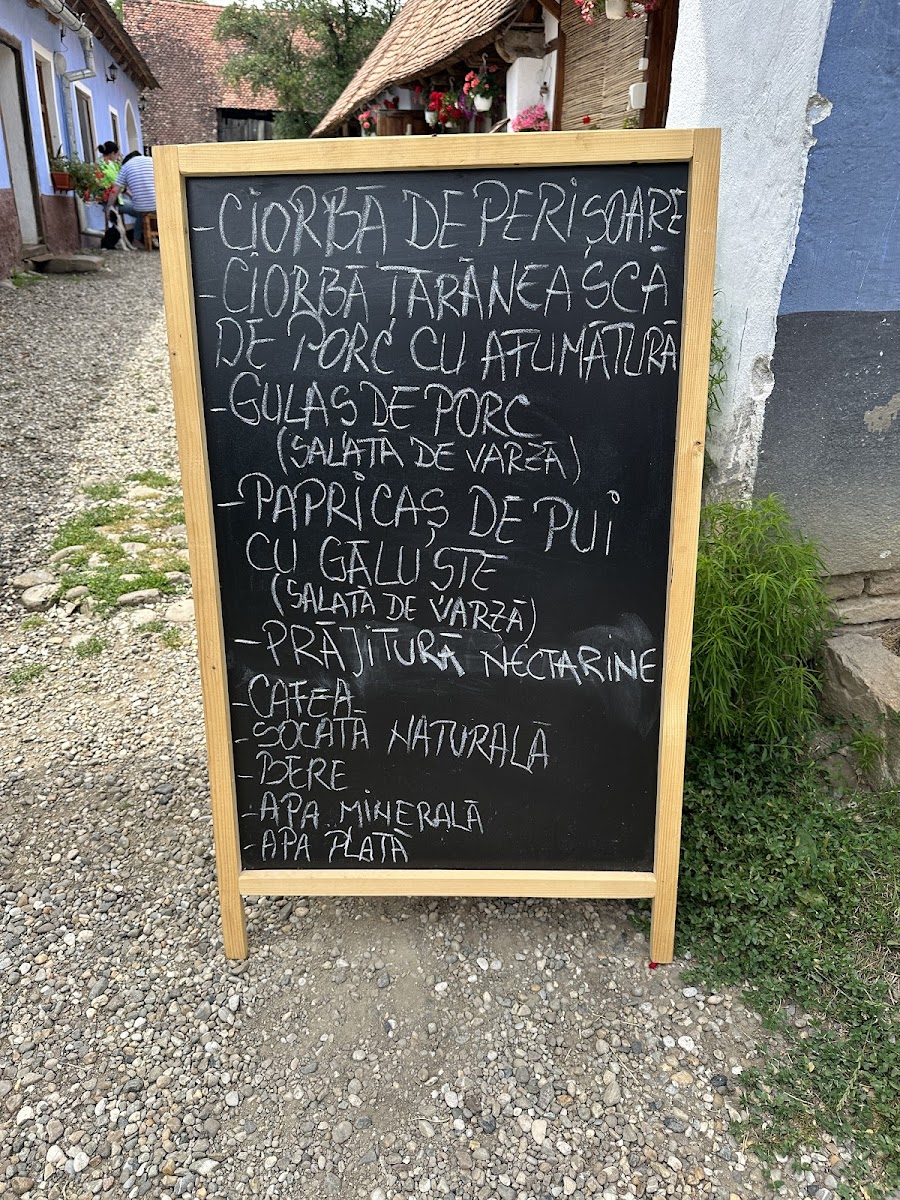 - CIORBĂ DE PERIȘOARE
- CIORBĂ ȚĂRĂNEASCĂ
DE PORC CU AFUMĂTURĂ
- GULAȘ DE PORC
(SALATĂ DE VARZĂ)
- PAPRICAȘ DE PUI
CU GĂLUȘTE
(SALATĂ DE VARZĂ)
- PRĂJITURĂ NECTARINE
- CAFEA
- SOCATĂ NATURALĂ
- BERE
- APĂ MINERALĂ
- APĂ PLATĂ